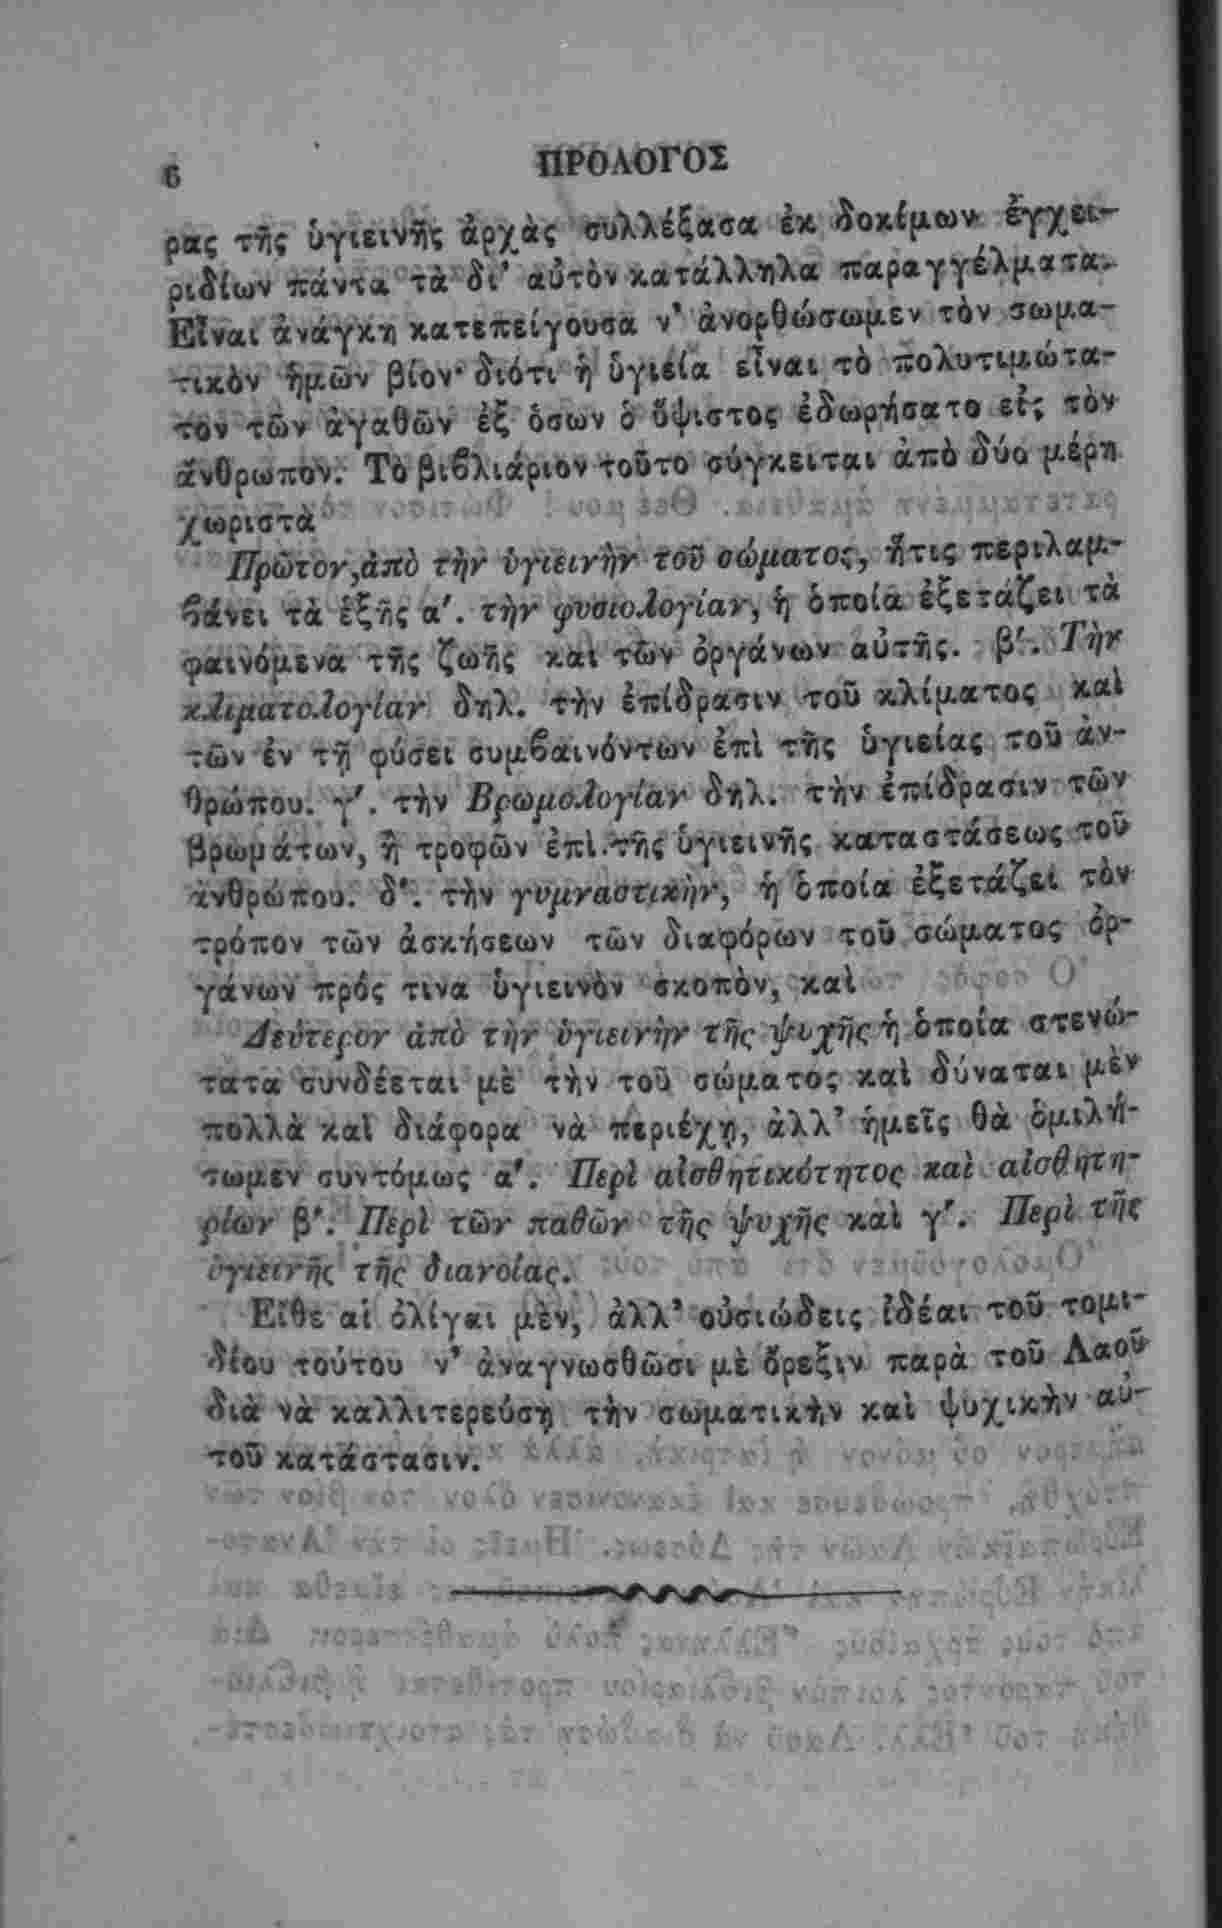 6
ΠΡΟΛΟΓΟΣ
ρας τῆς ὑγιεινῆς ἀρχὰς συλλέξασα ἐκ δοκίμων ἐγχει-
ριδίων πάντα τὰ δι’ αὐτὸν κατάλληλα παραγγέλματα.
Εἶναι ἀνάγκη κατεπείγουσα ν’ ἀνορθώσωμεν τὸν σωμα-
τικὸν ἡμῶν βίον· διότι ἡ ὑγιεία εἶναι τὸ πολυτιμώτα-
τον τῶν ἀγαθῶν ἐξ ὅσων ὁ ὕψιστος ἐδωρήσατο εἰς τὸν
ἄνθρωπον. Τὸ βιβλιάριον τοῦτο σύγκειται ἀπὸ δύο μέρη
χωριστὰ
Πρῶτον, ἀπὸ τὴν ὑγιεινὴν τοῦ σώματος, ἥτις περιλαμ-
βάνει τὰ ἑξῆς α′. τὴν φυσιολογίαν, ἡ ὁποία ἐξετάζει τὰ
φαινόμενα τῆς ζωῆς καὶ τῶν ὀργάνων αὐτῆς. β′. Τὴν
κλιματολογίαν δηλ. τὴν ἐπίδρασιν τοῦ κλίματος καὶ
τῶν ἐν τῇ φύσει συμβαινόντων ἐπὶ τῆς ὑγιείας τοῦ ἀν-
θρώπου. γ′. τὴν Βρωμολογίαν δηλ. τὴν ἐπίδρασιν τῶν
βρωμάτων, ἢ τροφῶν ἐπὶ τῆς ὑγιεινῆς καταστάσεως τοῦ
ἀνθρώπου. δ′. τὴν γυμναστικὴν, ἡ ὁποία ἐξετάζει τὸν
τρόπον τῶν ἀσκήσεων τῶν διαφόρων τοῦ σώματος ὀρ-
γάνων πρός τινα ὑγιεινὸν σκοπὸν, καὶ
Δεύτερον ἀπὸ τὴν ὑγιεινὴν τῆς ψυχῆς ἡ ὁποία στενώ-
τατα συνδέεται μὲ τὴν τοῦ σώματος καὶ δύναται μὲν
πολλὰ καὶ διάφορα νὰ περιέχῃ, ἀλλ’ ἡμεῖς θὰ ὁμιλή-
σωμεν συντόμως α′. Περὶ αἰσθητικότητος καὶ αἰσθητη-
ρίων β′. Περὶ τῶν παθῶν τῆς ψυχῆς καὶ γ′. Περὶ τῆς
ὑγιεινῆς τῆς διανοίας.
Εἴθε αἱ ὀλίγαι μὲν, ἀλλ’ οὐσιώδεις ἰδέαι τοῦ τομι-
δίου τούτου ν’ ἀναγνωσθῶσι μὲ ὄρεξιν παρὰ τοῦ Λαοῦ
διὰ νὰ καλλιτερεύσῃ τὴν σωματικὴν καὶ ψυχικὴν αὑ-
τοῦ κατάστασιν.